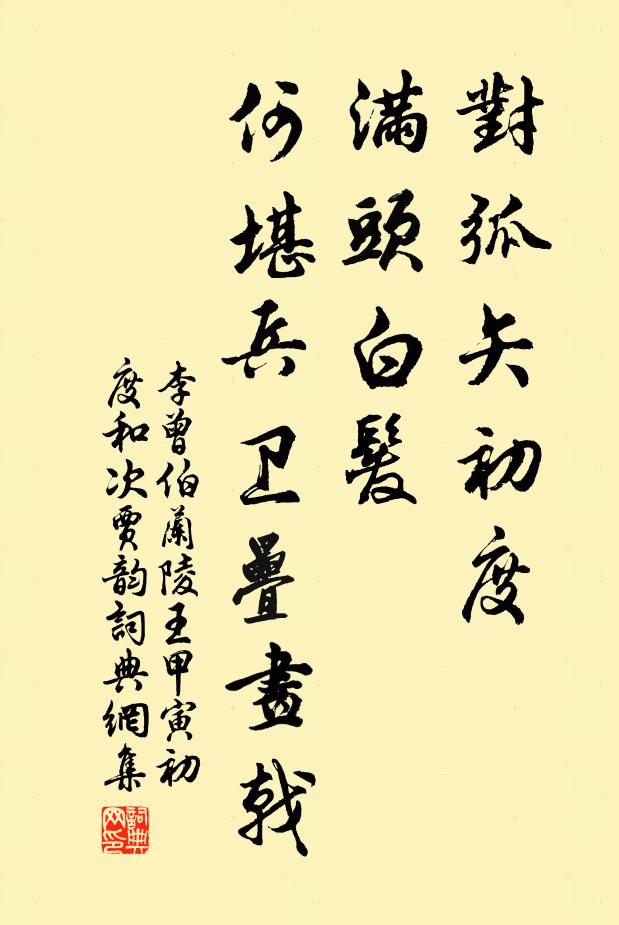 對弧矢初度
滿頭白髮
何堪兵卫疊畫戟
李曾伯蘭陵王甲寅初
度和次贾韵詞典網集
詞典
网印